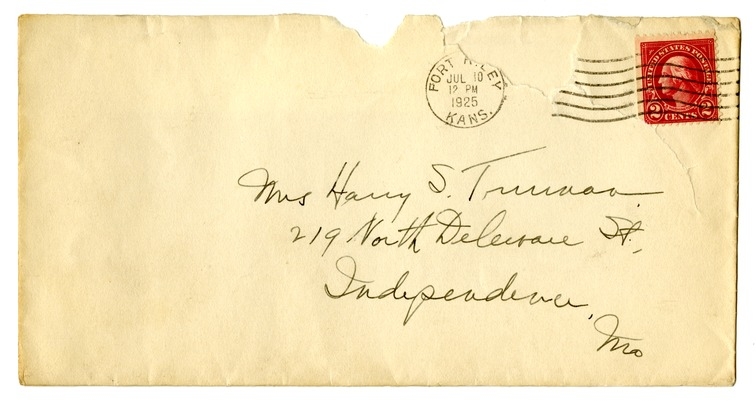 FORT RILEY
JUL 10
12 PM
1925
KANS.
UNITED STATES POSTAGE
2 CENTS 2
Mrs Harry S. Truman.
219 North Delaware St.,
Independence,
Mo